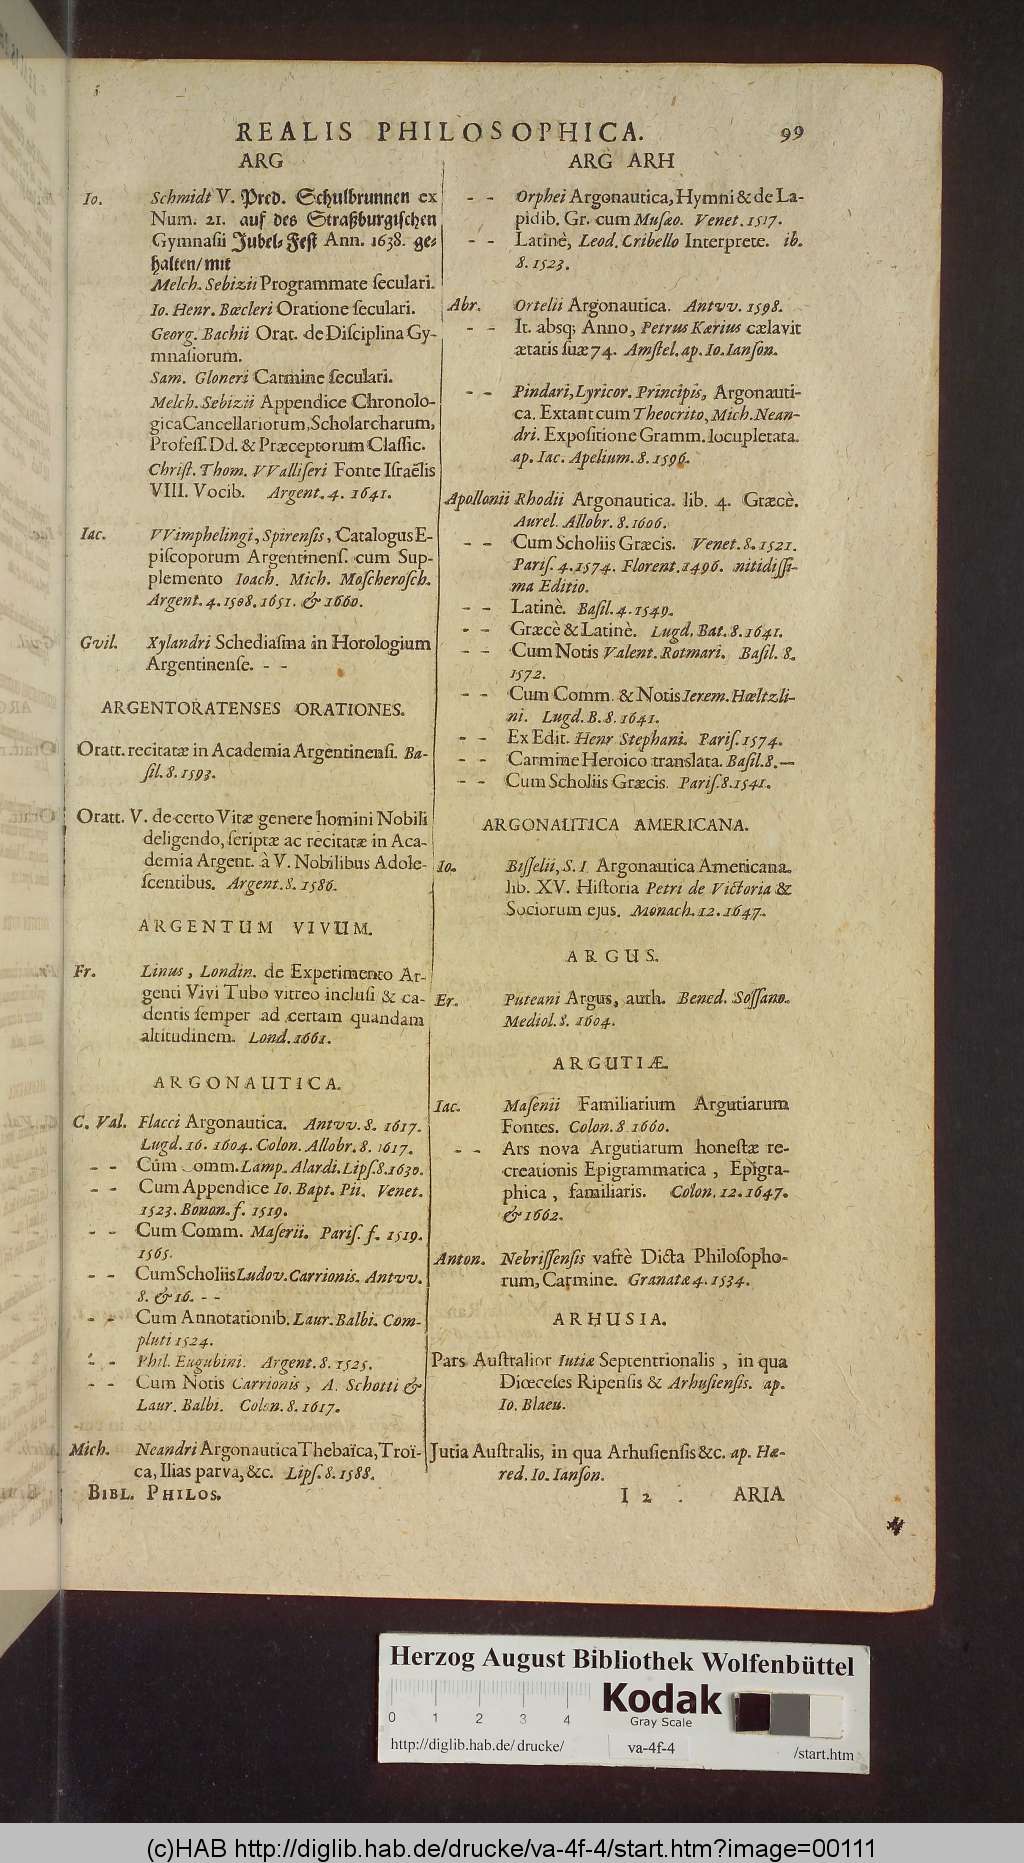 REALIS PHILOSOPHICA. 99
ARG
Io. Schmidt V. Pred. Schulbrunnen ex
Num. 21. auf des Straßburgischen
Gymnasii Jubel-Fest Ann. 1638. ge-
halten/mit
Melch. Sebizii Programmate seculari.
Io. Henr. Bœcleri Oratione seculari.
Georg. Bachii Orat. de Disciplina Gy-
mnasiorum.
Sam. Gloneri Carmine seculari.
Melch. Sebizii Appendice Chronolo-
gica Cancellariorum, Scholarcharum,
Profess. Dd. & Præceptorum Classic.
Christ. Thom. VValliseri Fonte Israëlis
VIII. Vocib. Argent. 4. 1641.
Iac. VVimphelingi, Spirensis, Catalogus E-
piscoporum Argentinens. cum Sup-
plemento Ioach. Mich. Moscherosch.
Argent. 4. 1508. 1651. & 1660.
Gvil. Xylandri Schediasma in Horologium
Argentinense. - -
ARGENTORATENSES ORATIONES.
Oratt. recitatæ in Academia Argentinensi. Ba-
sil. 8. 1593.
Oratt. V. de certo Vitæ genere homini Nobili
deligendo, scriptæ ac recitatæ in Aca-
demia Argent. à V. Nobilibus Adole-
scentibus. Argent. 8. 1586.
ARGENTUM VIVUM.
Fr. Linus, Londin. de Experimento Ar-
genti Vivi Tubo vitreo inclusi & ca-
dentis semper ad certam quandam
altitudinem. Lond. 1661.
ARGONAUTICA.
C. Val. Flacci Argonautica. Antvv. 8. 1617.
Lugd. 16. 1604. Colon. Allobr. 8. 1617.
- - Cum Comm. Lamp. Alardi. Lips. 8. 1630.
- - Cum Appendice Io. Bapt. Pii. Venet.
1523. Bonon. f. 1519.
- - Cum Comm. Maserii. Paris. f. 1519.
1565.
- - Cum Scholiis Ludov. Carrionis. Antvv.
8. & 16. - -
- - Cum Annotationib. Laur. Balbi. Com-
pluti 1524.
- - Phil. Eugubini. Argent. 8. 1525.
- - Cum Notis Carrionis, A. Schotti &
Laur. Balbi. Colon. 8. 1617.
Mich. Neandri Argonautica Thebaïca, Troï-
ca, Ilias parva, &c. Lips. 8. 1588.
BIBL. PHILOS.
ARG ARH
- - Orphei Argonautica, Hymni & de La-
pidib. Gr. cum Musæo. Venet. 1517.
- - Latinè, Leod. Cribello Interprete. ib.
8. 1523.
Abr. Ortelii Argonautica. Antvv. 1598.
- - It. absq; Anno, Petrus Kærius cælavit
ætatis suæ 74. Amstel. ap. Io. Ianson.
- - Pindari, Lyricor. Principis, Argonauti-
ca. Extant cum Theocrito, Mich. Nean-
dri. Expositione Gramm. locupletata.
ap. Iac. Apelium. 8. 1596.
Apollonii Rhodii Argonautica. lib. 4. Græcè.
Aurel. Allobr. 8. 1606.
- - Cum Scholiis Græcis. Venet. 8. 1521.
Paris. 4. 1574. Florent. 1496. nitidissi-
ma Editio.
- - Latinè. Basil. 4. 1549.
- - Græcè & Latinè. Lugd. Bat. 8. 1641.
- - Cum Notis Valent. Rotmari. Basil. 8.
1572.
- - Cum Comm. & Notis Ierem. Hœltzli-
ni. Lugd. B. 8. 1641.
- - Ex Edit. Henr Stephani. Paris. 1574.
- - Carmine Heroico translata. Basil. 8. —
- - Cum Scholiis Græcis. Paris. 8. 1541.
ARGONAUTICA AMERICANA.
Io. Bisselii, S. I. Argonautica Americana.
lib. XV. Historia Petri de Victoria &
Sociorum ejus. Monach. 12. 1647.
ARGUS.
Er. Puteani Argus, auth. Bened. Sossano.
Mediol. 8. 1604.
ARGUTIÆ.
Iac. Masenii Familiarium Argutiarum
Fontes. Colon. 8 1660.
- - Ars nova Argutiarum honestæ re-
creationis Epigrammatica, Epigra-
phica, familiaris. Colon. 12. 1647.
& 1662.
Anton. Nebrissensis vafrè Dicta Philosopho-
rum, Carmine. Granatæ 4. 1534.
ARHUSIA.
Pars Australior Iutiæ Septentrionalis, in qua
Diœceses Ripensis & Arhusiensis. ap.
Io. Blaeu.
Jutia Australis, in qua Arhusiensis &c. ap. Hæ-
red. Io. Ianson.
I 2 . ARIA
Herzog August Bibliothek Wolfenbüttel
0 1 2 3 4
Kodak
Gray Scale
http://diglib.hab.de/drucke/ va-4f-4 /start.htm
(c)HAB http://diglib.hab.de/drucke/va-4f-4/start.htm?image=00111